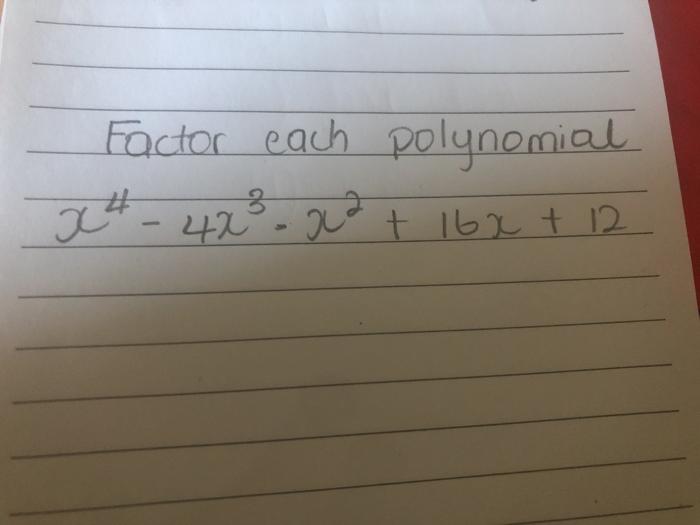 Factor each polynomial
x⁴ - 4x³ - x² + 16x + 12